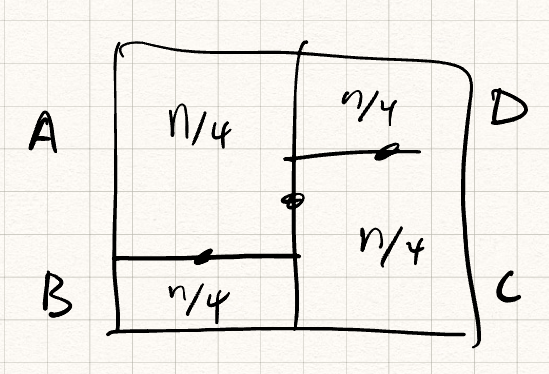 n/4
A
n/4
D
n/4
B
n/4
C